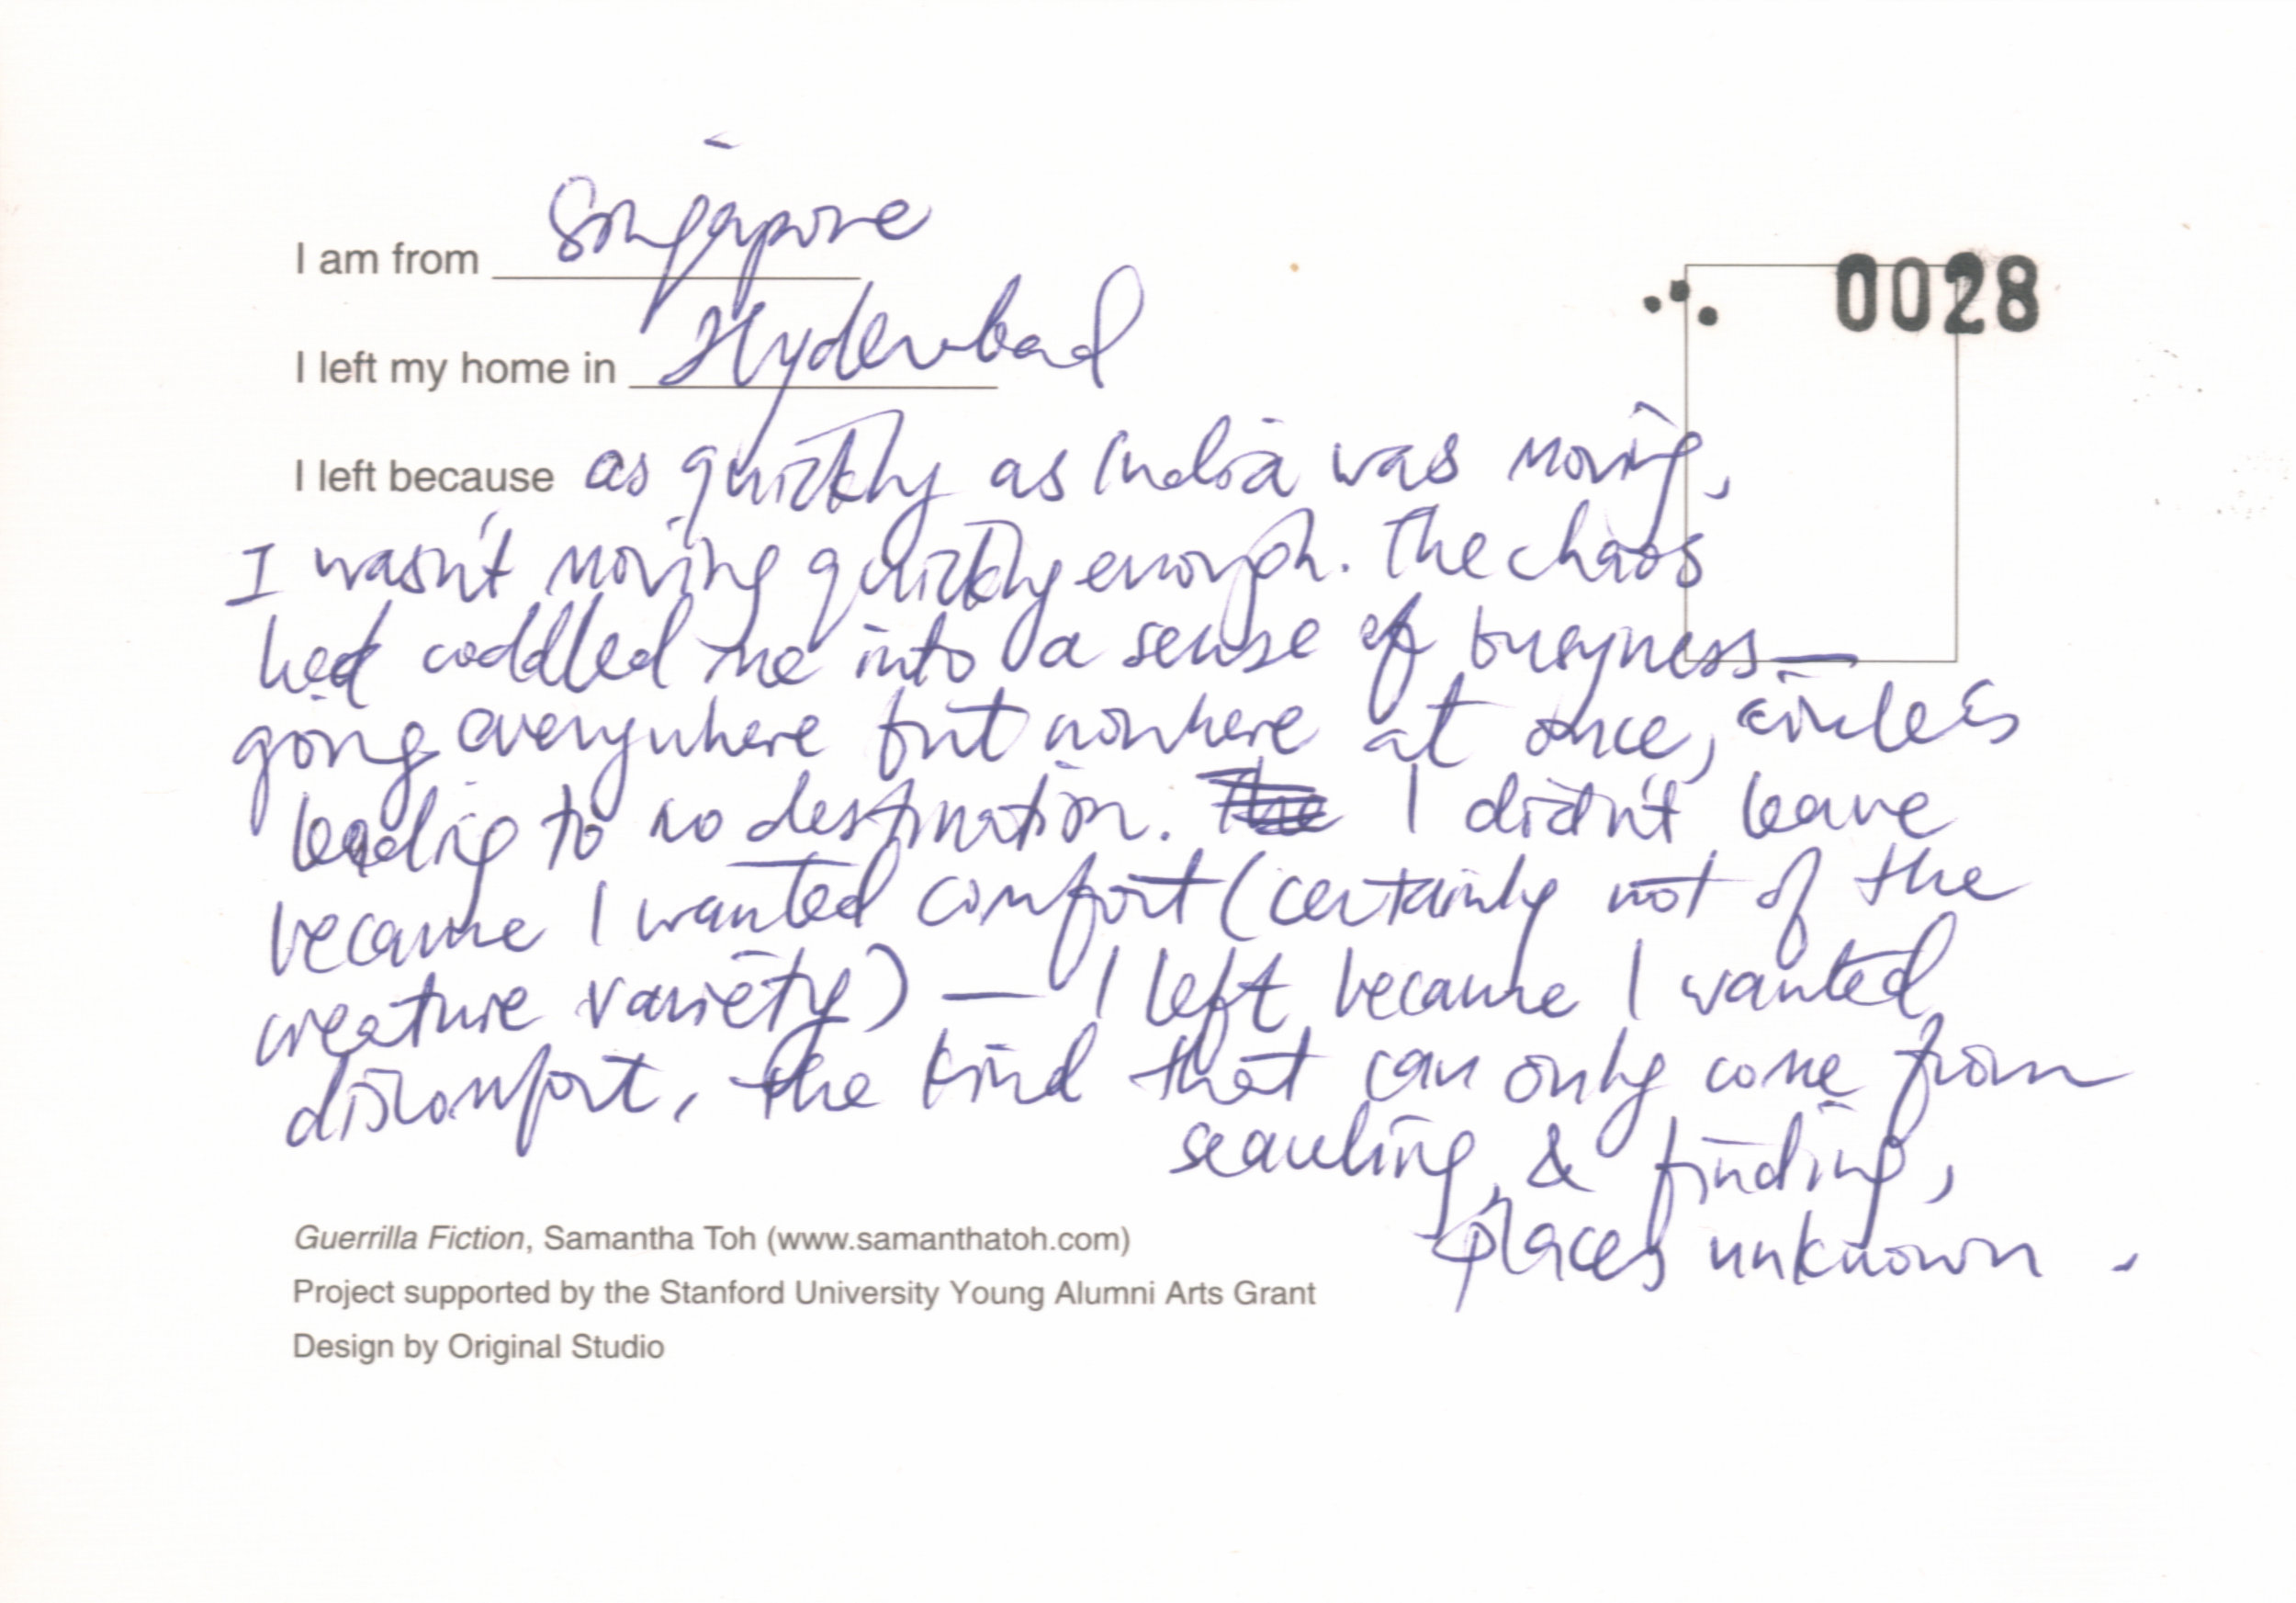 I am from Singapore
0028
I left my home in Hyderabad
I left because as quickly as India was moving,
I wasn't moving quickly enough. The chaos
had coddled me into a sense of busyness—
going everywhere but nowhere at once, circles
leading to no destination. The I didn't leave
because I wanted comfort (certainly not of the
creature variety) — I left because I wanted
discomfort, the kind that can only come from
searching, & finding,
places unknown.
Guerrilla Fiction, Samantha Toh (www.samanthatoh.com)
Project supported by the Stanford University Young Alumni Arts Grant
Design by Original Studio